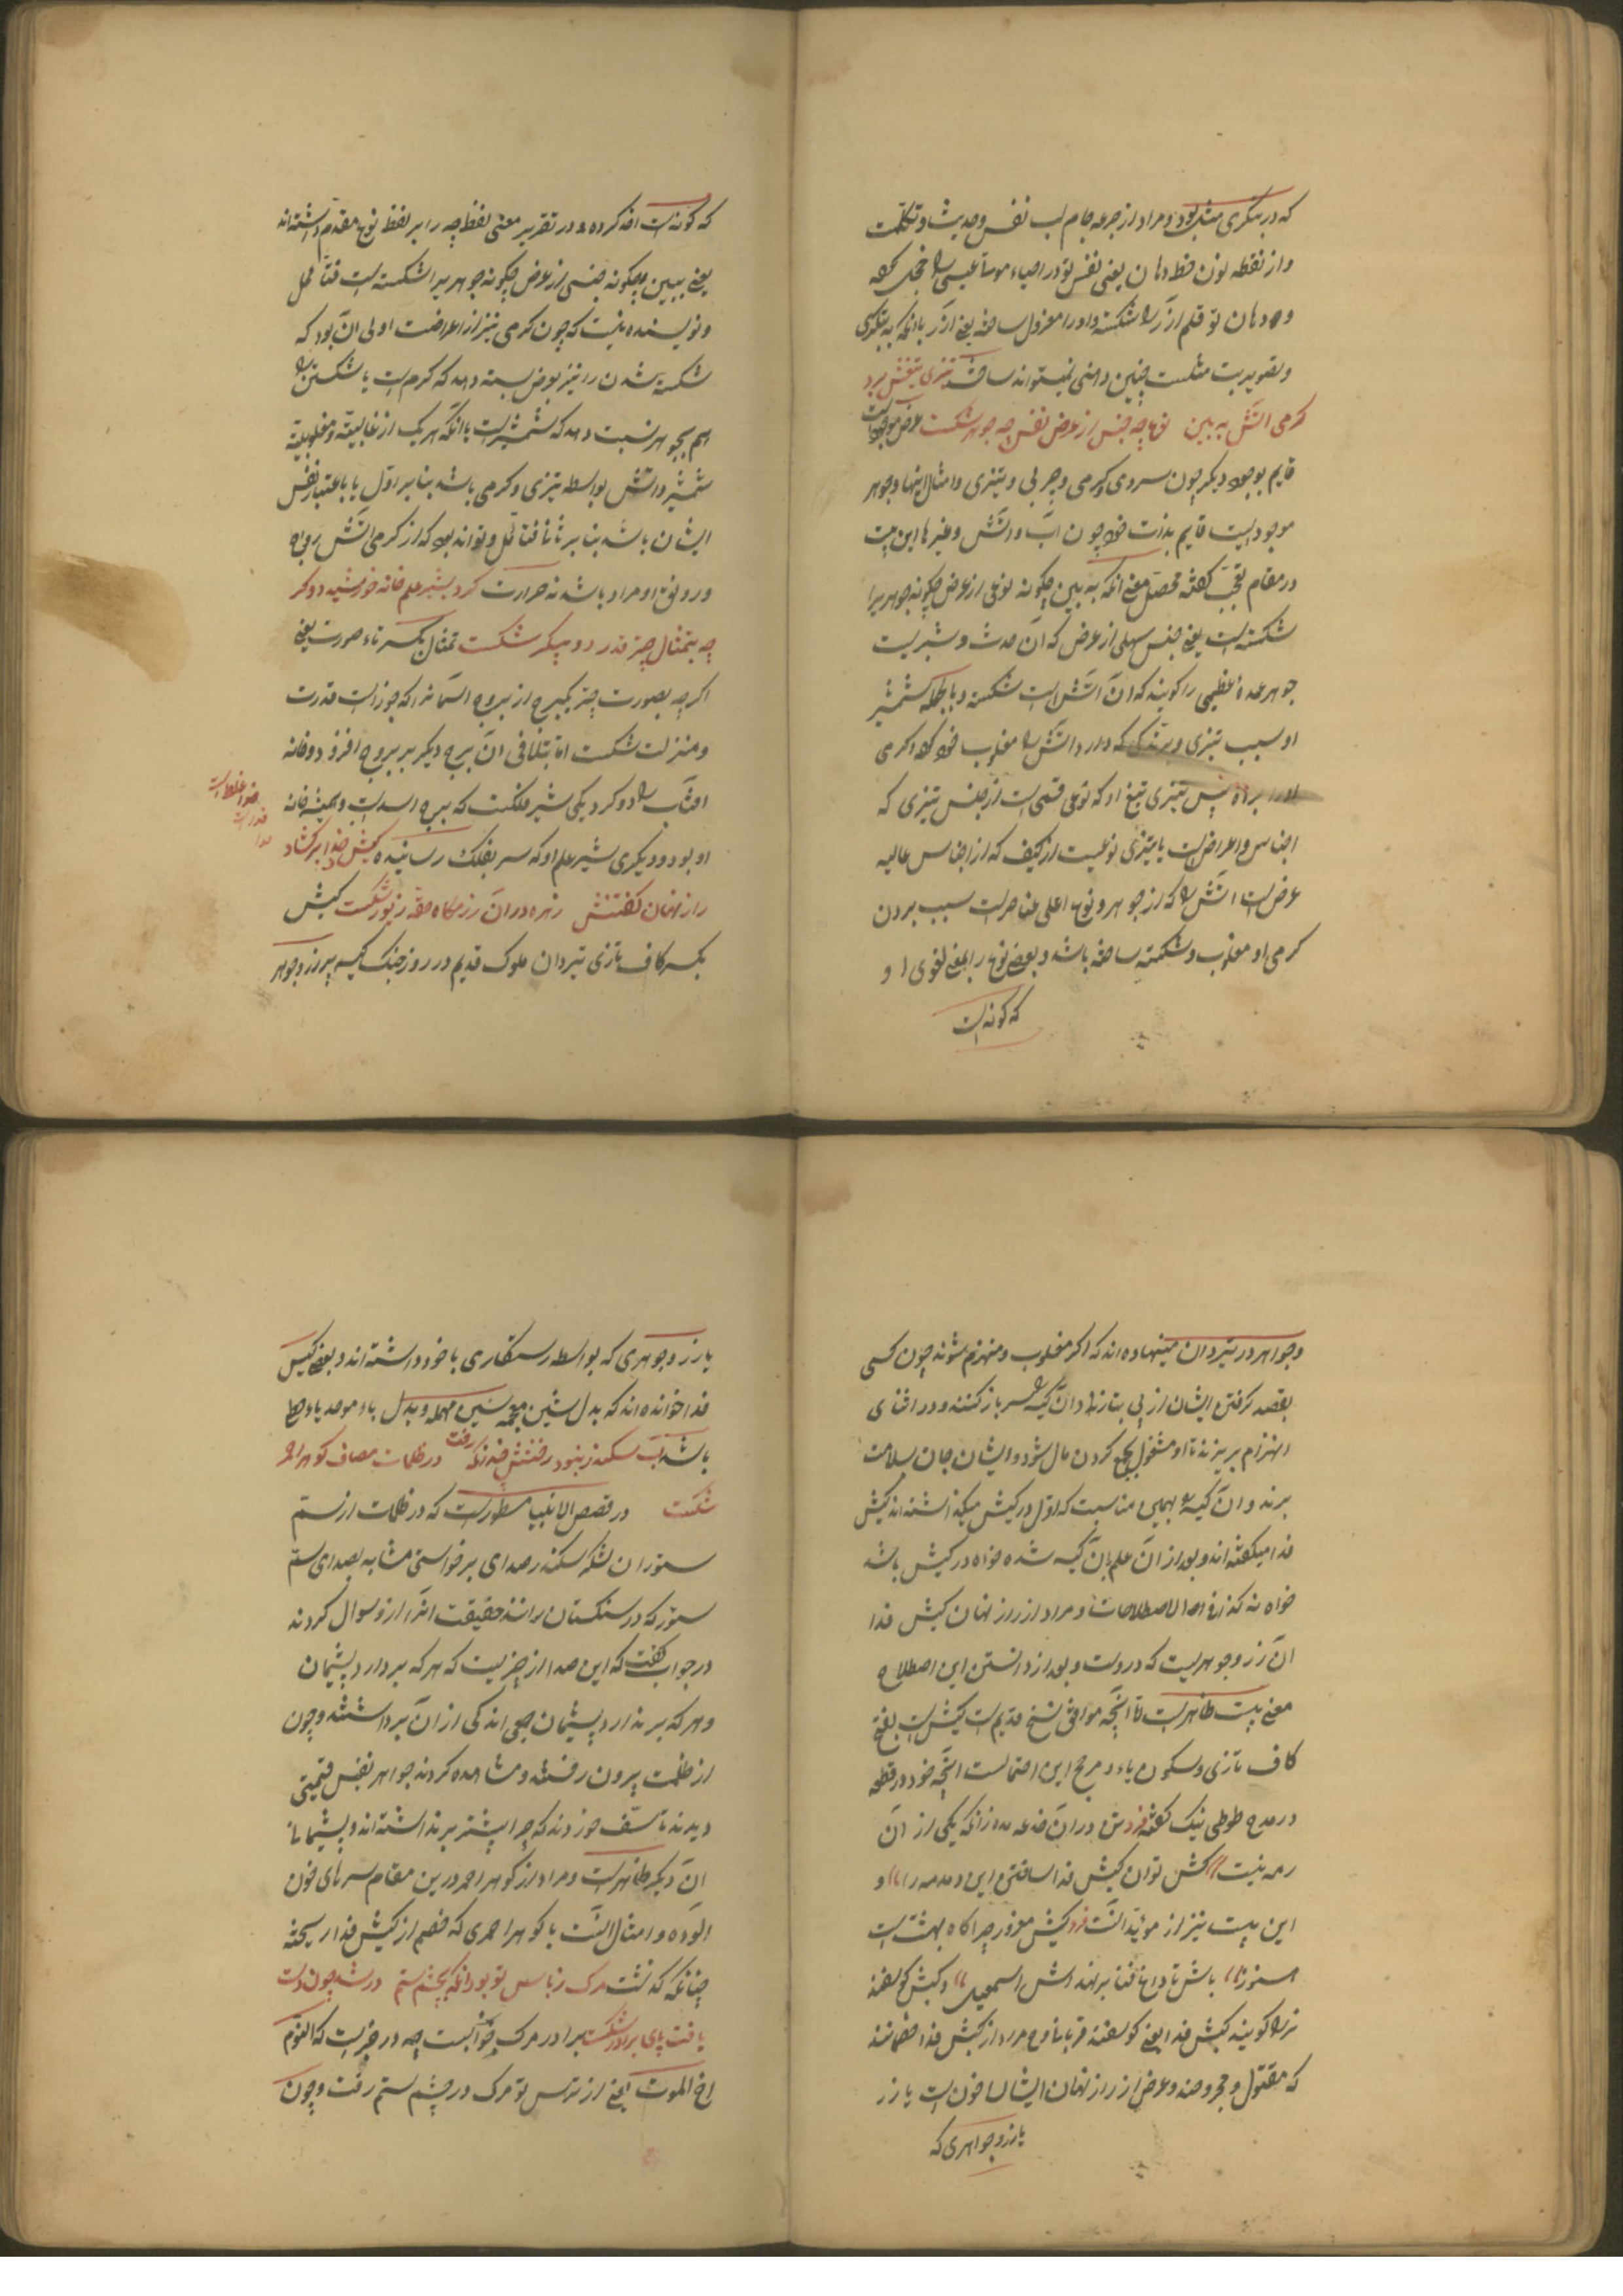 که در بتکری مثل بود و مراد از جرعه جام لب نفس و حدیث و تکلمت
و از نقطه نون خط دهان یعنی نفس تو در احیاء موتا عیسی را خجل کرده
و دهان تو قلم آزر را شکسته و او را معزول ساخته یعنی آزر با آنکه به بتکری
و تصویر بت مثلست چنین دهنی نمیتواند ساخت تیزی تیغش ببرد
کرمی آتش به بین نوع چه جنس از عرض نفس چه جوهر شکست عرض موجودیست
قایم بوجود دیکر چون سردی و کرمی و چربی و تیزی و امثال اینها و جوهر
موجودیست قایم بذات خود چون آب و آتش و غیرها این بیت
در مقام تعجب کفته محصل معنی آنکه به بین چکونه نوعی از عرض چکونه جوهریرا
شکسته است یعنی جنس سهلی از عرض که آن حدث و تیزیست
جوهر عمده عظیمی را کویند که آن آتش است شکسته و بالجمله شمشیر
او بسبب تیزی و برندکی که دارد آتش را مغلوب خود کرده کرمی
او را برده پس تیزی تیغ او که نوعی قسمی است از جنس تیزی که
اجناس و اعراض است یا تیزی نوعیست از کیف که از اجناس عالیه
عرض است آتش را که از جوهر و نوع اعلی عناصر است بسبب بردن
کرمی او مغلوب و شکسته ساخته باشد و بعضی نوع را بمعنی لغوی او
که کونه است
که کونه است اخذ کرده و در تقریر معنی لفظ چه را بر لفظ نوع مقدم داشته اند
یعنی ببین چکونه جنسی از عرض چکونه جوهریرا شکسته است فتأمل
و نویسنده نیست که چون کرمی نیز از اعراضست اولی آن بود که
شکسته شدن را نیز بعرض نسبت دهد که کرم است یا شکستن را
هم بجوهر نسبت دهد که شمشیر است با آنکه هر یک از غالبیة و مغلوبیة
شمشیر و آتش بواسطه تیزی و کرمی باشد بنا بر اول یا باعتبار نفس
ایشان باشد بنا بر ثانی فتأمل و تواند بود که از کرمی آتش رواج
و رونق او مراد باشد نه حرارت کرد بشیر علم خانه خورشید دو کر
چه بتمثال چتر قدر دو پیکر شکست تمثال بکسر تاء صورت یعنی
اکر چه بصورت چتر یکبرج از بروج آسمانرا که جوزاست قدرت
و منزلت شکست اما بتلافی آن برج دیکر بر بروج افزود و خانه
آفتاب را دو کرد یکی شیر فلکست که برج اسد است و همیشه خانه
او بود و دیکری شیر علم او که سر بفلک رسانیده کیش خدا بر کشاد
راز نهان کفتنش زهره در آن رزمکاه حقه زیور شکست کیش
بکسر کاف تازی تیردان ملوک قدیم در روز جنک کیسه پر زر و جوهر
و جواهر در تیردان مینهاده اند که اکر مغلوب و منهزم شوند چون کسی
بقصد کرفتن ایشان از پی بتازد آن کیسه را سر باز کنند و در اثنای
انهزام بریزند تا او مشغول بجمع کردن مال شود و ایشان جان بسلامت
برند و آن کیسه را بهمین مناسبت که اول در کیش میکذاشته اند کیش
فدا میکفته اند و بعد از آن علم آن کیسه شده خواه در کیش باشد
خواه نه کذا فی اصطلاحات و مراد از راز نهان کیش فدا
آن زر و جوهریست که دروست و بعد از دانستن این اصطلاح
معنی بیت ظاهر است اما آنچه موافق نسخ قدیم است کیش است بفتح
کاف تازی و سکون یاء و مرجح این احتمالست آنچه خود در قطعه
در مدح طوطی نیک کفته
رمه نیست کش توان کیش فدا ساختن این دمدمه را و
این بیت نیز از مؤیدآنست فرد کیش مغرور چراکاه بهشت است
هنوز باش تا داغ فنا بر نهد اسمعیل و کبش کوسفند
نر را کویند کبش فدا یعنی کوسفند قربانی و مراد از کبش فدا خصمانند
که مقتول و مجروحند و غرض از راز نهان ایشان خون است یا زر
یا زر و جوهری که
یا زر و جوهری که بواسطه رستکاری با خود داشته اند و بعضی کیس
فدا خوانده اند که بدل شین معجمه سین مهمله و بدل باء موحده یاء حطی
باشد آب سکندر نبود رفتنش خنده زنکه رفت در ظلمات مصاف کوهر احمر
شکست در قصص الانبیا مسطور است که در ظلمات از سم
ستوران لشکر سکندر صدای برخواستی مشابه بصدای سم
ستور که در سنکستان رانند حقیقت آنرا ازو سوال کردند
در جواب کفت که این صدا از چیزیست که هر که بردارد پشیمان
و هر که برندارد پشیمان جمعی اندکی از آن برداشتند و چون
از ظلمت بیرون رفتند و مشاهده کردند جواهر نفیس قیمتی
دیدند تأسف خوردند که چرا بیشتر برنداشته اند و پشیمانی
آن دیکر ظاهر است و مراد از کوهر احمر درین مقام سرهای خون
آلوده و امثال آنست یا کوهر احمری که خصم از کیش فدا ریخته
چنانکه کذشت مرک ز باس تو بود آنکه بچشم ستم در شد چون دست
یافت پای برادر شکست برادر مرک خوابست چه در خبر است که النوم
اخ الموت یعنی از ترس تو مرک در چشم ستم رفت و چون